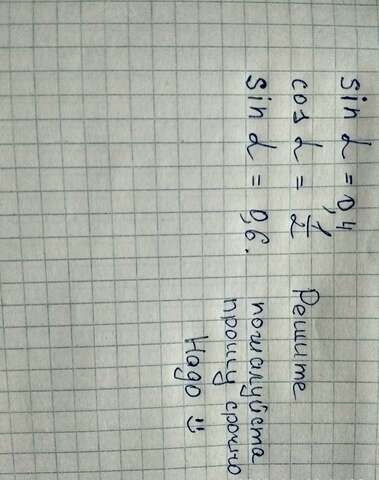 sin α = 0,4
cos α = 1/2
sin α = 0,6.
Решите
пожалуйста
прошу срочно
Надо :)